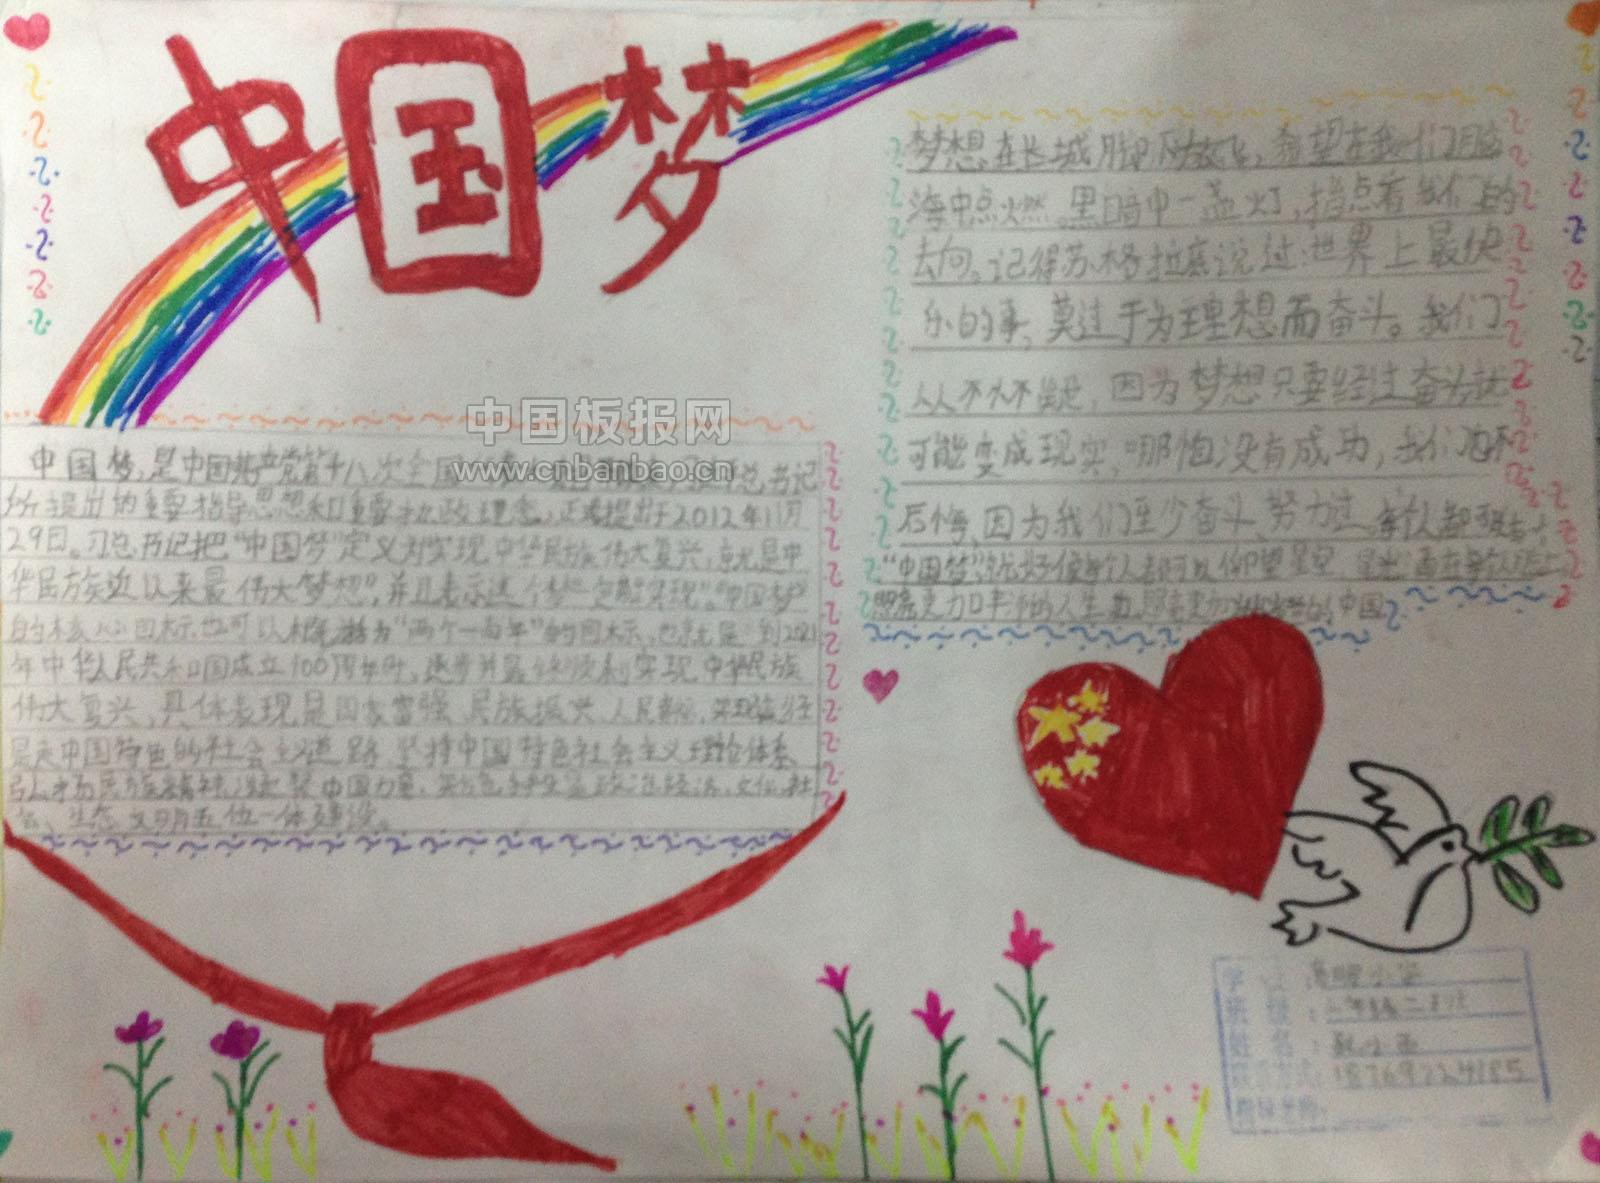 中国梦
中国板报网
www.cnbanbao.cn
中国梦，是中国共产党第十八次全国总书记
所提出的重要指导思想和重要执政理念，正式提出于2012年11月
29日。习总书记把“中国梦”定义为实现中华民族伟大复兴，就是中
华民族近以来最伟大梦想”，并且表示这个梦“一定能实现”。“中国梦”
的核心目标也可以概括为“两个一百年”的目标，也就是：到2021
年中华人民共和国成立100周年时，逐步并最终顺利实现中华民族
伟大复兴，具体表现是国家富强、民族振兴、人民幸福，实现途径
是走中国特色的社会主义道路、坚持中国特色社会主义理论体系、
弘扬民族精神、凝聚中国力量，政治、经济、文化、社
会、生态文明五位一体建设。
梦想在长城脚下放飞，希望在我们脑
海中点燃。黑暗中一盏灯，指点着我们的
去向。记得苏格拉底说过：世界上最快
乐的事，莫过于为理想而奋斗。我们
从不怀疑，因为梦想只要经过奋斗就
可能变成现实，哪怕没有成功，我们也不
后悔，因为我们至少奋斗、努力过
“中国梦”，就好像每个人都可以仰望星空
人生 中国
班 级：
姓 名：
联系方式：18769724185
指导老师：